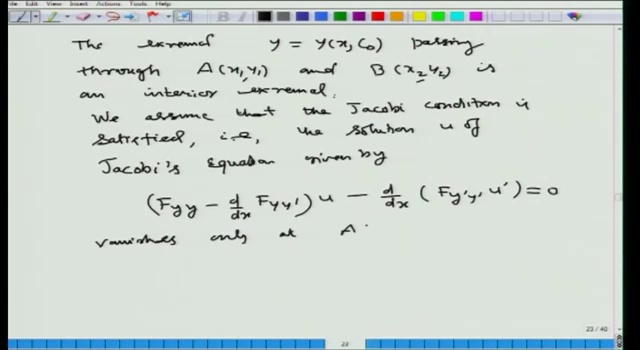 File Edit View Insert Actions Tools Help
The extremal y = y(x, C₀) passing
through A(x₁, y₁) and B(x₂, y₂) is
an interior extremal.
We assume that the Jacobi condition is
satisfied, i.e, the solution u of
Jacobi's Equation given by
(F_{yy} - d/dx F_{yy'}) u - d/dx (F_{y'y'} u') = 0
vanishes only at A.
23 / 40
23